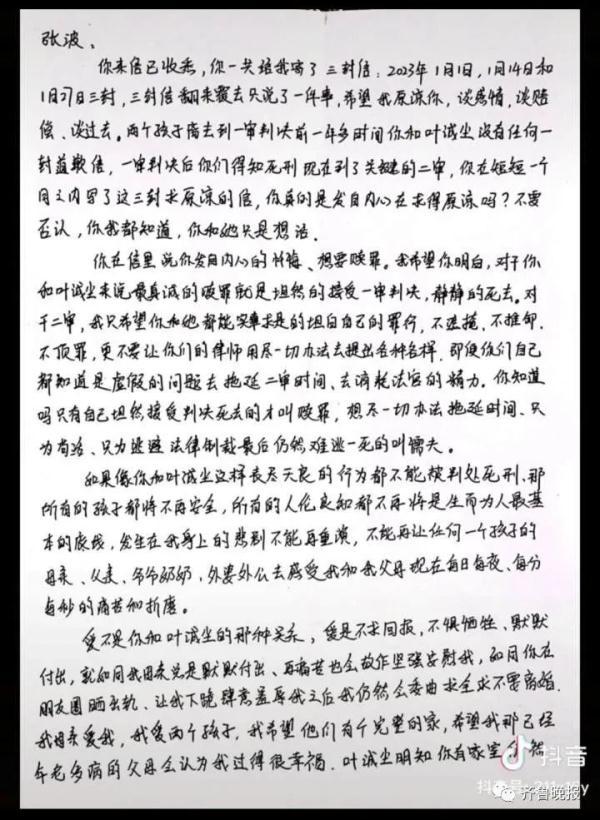 张波、
你来信已收悉，你一共给我寄了三封信：2023年1月1日，1月14日和
1月27日三封，三封信翻来覆去只说了一件事，希望我原谅你，谈感情，谈赔
偿、谈过去。两个孩子离去到一审判决前一年多时间你和叶诚尘没有任何一
封道歉信，一审判决后你们得知死刑现在到了关键的二审，你在短短一个
月之内写了这三封求原谅的信，你真的是发自内心在求得原谅吗？不要
否认，你我都知道，你和她只是想活．
你在信里说你发自内心的忏悔、想要赎罪。我希望你明白，对于你
和叶诚尘来说最真诚的赎罪就是坦然的接受一审判决，静静的死去。对
于二审，我只希望你和她都能实事求是的坦白自己的罪行，不遮掩、不推卸．
不顶罪，更不要让你们的律师用尽一切办法去提出各种各样．即便你们自己
都知道是虚假的问题去拖延二审时间、去消耗法官的精力。你知道
吗只有自己坦然接受判决死去的才叫赎罪，想尽一切办法拖延时间、只
为苟活、只为逃避法律制裁最后仍然难逃一死的叫懦夫。
如果像你和叶诚尘这样丧尽天良的行为都不能被判处死刑．那
所有的孩子都将不再安全，所有的人伦良知都不再将是生而为人最基
本的底线，发生在我身上的悲剧不能再重演，不能再让任何一个孩子的
母亲、父亲、爷爷奶奶，外婆外公去感受我和我父母现在每日每夜、每分
每秒的痛苦和折磨。
爱不是你和叶诚尘的那种关系，爱是不求回报，不惧牺牲、默默
付出，就如同我母亲总是默默付出、再痛苦也会故作坚强安慰我，如同你在
朋友圈晒出轨、让我下跪肆意羞辱我之后我仍然会委曲求全求不要离婚．
我母亲爱我，我爱两个孩子，我希望他们有个完整的家，希望我那已经
年老多病的父母会认为我过得很幸福．叶诚尘明知你有家室
抖音
抖音号：
齐鲁晚报